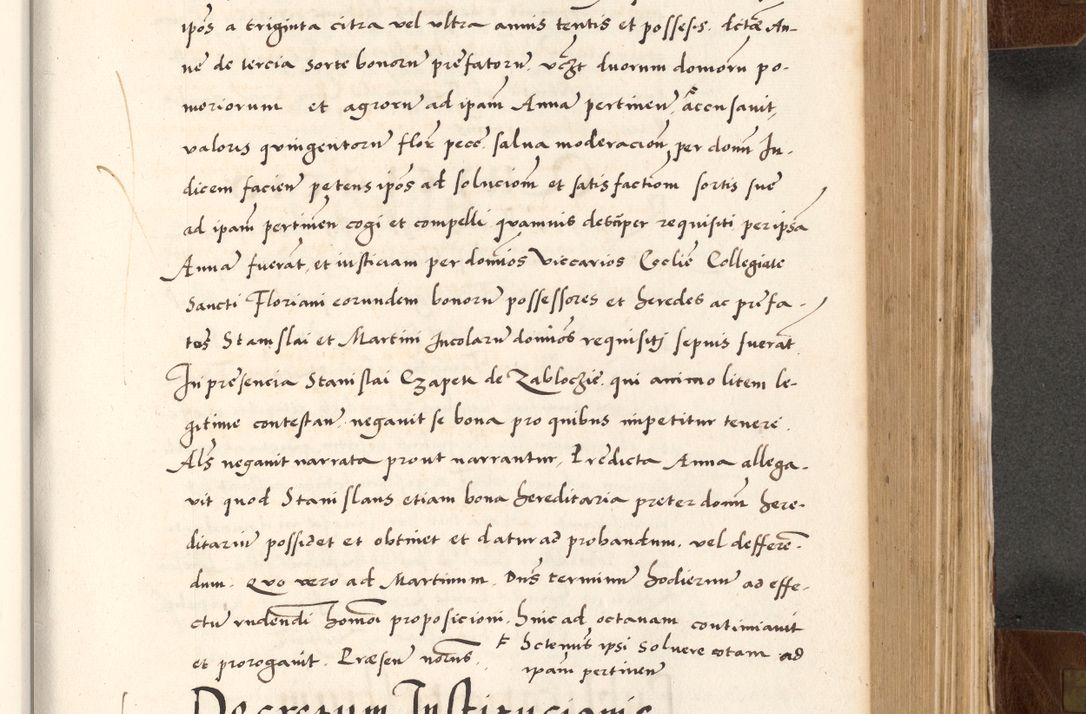 ipōs a triginta citra vel ultra annis tentis et posseſsis. dictæ An-
ne de tercia sorte bonorū prefatorū. vzt duorum domorū po-
moriorum et agrorū ad ipam Annā pertineñ. accusavit,
valoris quingentorū flor pecc. salva moderacion per domī Ju-
dicem facieñ petens ipōs ad solucioni et satisfactioni sortis sue
ad ipam pertineñ cogi et compelli. quamvis desuper requisiti per ipsā
Annā fuerāt, et iusticiam per domīos viccarios Ecclie Collegiate
Sancti Floriani eorundem bonorū possessores et heredes ac prefa-
tos Stanislai et Martini Incolarū domīos requisitj sepius fuerāt.
In presencia Stanislai Czapeta de Zablocziē. qui animo litem le-
gitime contestanī. negavit se bona pro quibus impetitur teneri.
Als negavit narrata prout narrantur, Predicta Anna allega-
vit quod Stanislaus etiam bona hereditaria preter domū here-
ditariū possidet et obtinet et datur ad probandum. vel defferē-
dum. Quo vero ad Martinum. Dns terminū hodiernū ad effe-
ctū rudendi homōi proposicioni. hinc ad octavam continuavit
et prorogavit. Præsen norūs. F hctenus ipsi solvere totam ad
ipam pertineñ
Decretum Institucionis